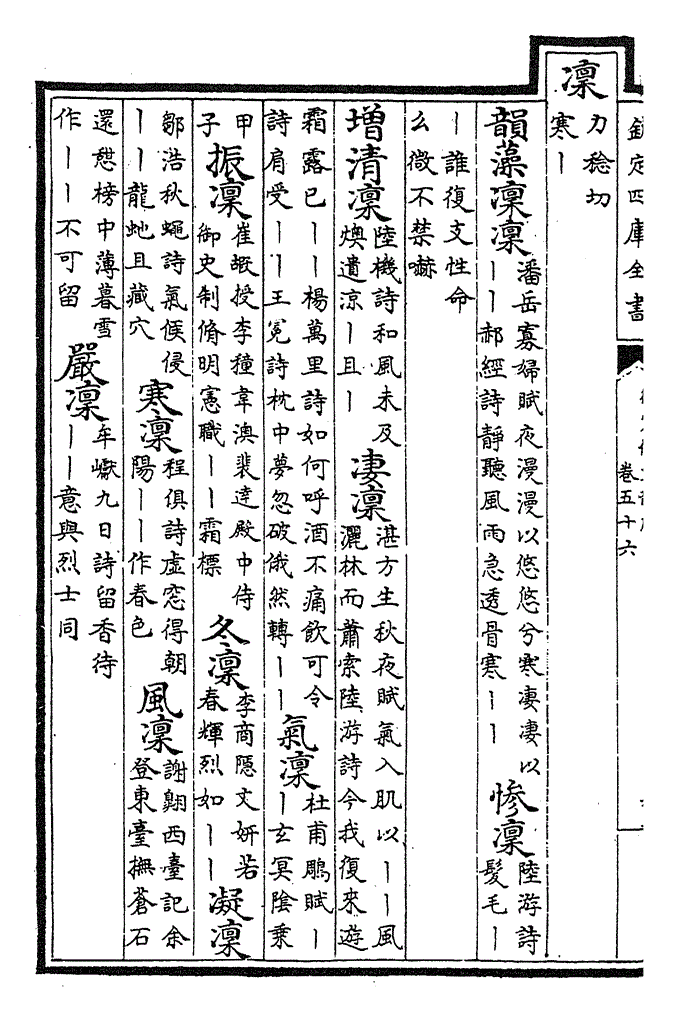 欽定四庫全書
卷五十六
凜
力稔切
寒丨
韻藻凜凜
潘岳寡婦賦夜漫漫以悠悠兮寒凄凄以
丨丨郝經詩靜聽風雨急透骨寒丨丨
慘凜
陸游詩
髮毛丨
丨誰復支性命
么微不禁嚇
增清凜
陸機詩和風未及
燠遺涼丨且丨
凄凜
湛方生秋夜賦氣入肌以丨丨風
灑林而蕭索陸游詩今我復來遊
霜露已丨丨楊萬里詩如何呼酒不痛飲可令
詩肩受丨丨王冕詩枕中夢忽破俄然轉丨丨
氣凜
杜甫鵰賦丨
丨玄冥陰乘
甲
子
振凜
崔嘏授李穜韋澳裴達殿中侍
御史制脩明憲職丨丨霜標
冬凜
李商隱文妍若
春輝烈如丨丨
凝凜
鄒浩秋蠅詩氣候侵
丨丨龍虵且藏穴
寒凜
程俱詩虛窓得朝
陽丨丨作春色
風凜
謝翶西臺記余
登東臺撫蒼石
還憇榜中薄暮雪
作丨丨不可留
嚴凜
牟巘九日詩留香待
丨丨意與烈士同